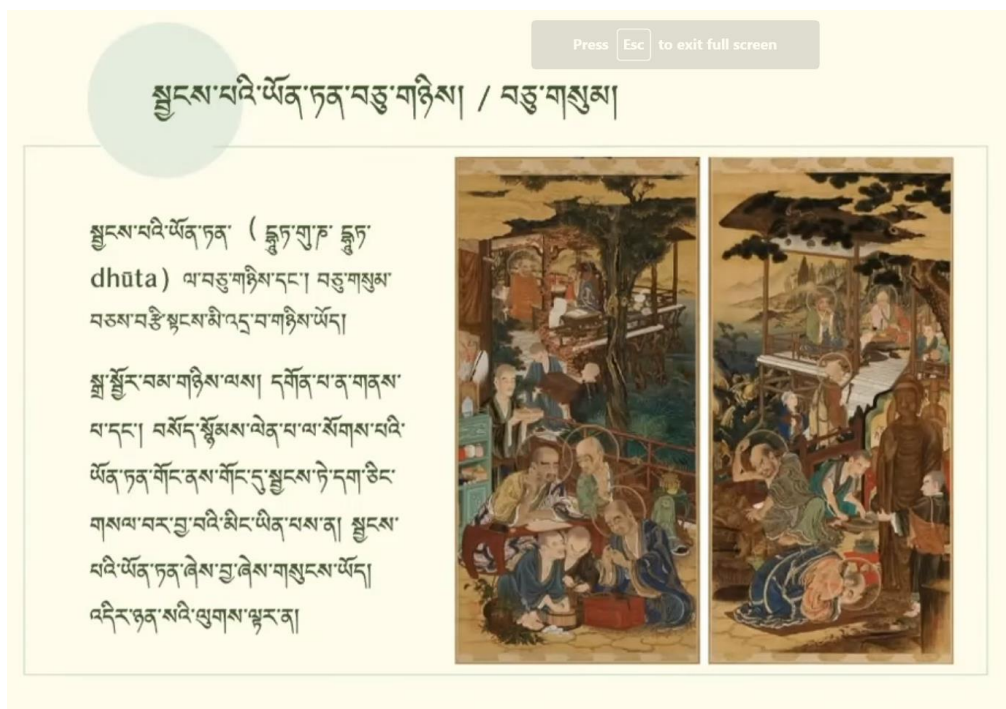 Press Esc to exit full screen
སྦྱངས་པའི་ཡོན་ཏན་བཅུ་གཉིས། / བཅུ་གསུམ།
སྦྱངས་པའི་ཡོན་ཏན་ ( དྷཱུཏ་གུ་ཎ་ དྷཱུཏ་
dhūta) ལ་བཅུ་གཉིས་དང་། བཅུ་གསུམ་
བཅས་བརྩི་སྟངས་མི་འདྲ་བ་གཉིས་ཡོད།
སྒྲ་སྦྱོར་བམ་གཉིས་ལས། དགོན་པ་ན་གནས་
པ་དང་། བསོད་སྙོམས་ལེན་པ་ལ་སོགས་པའི་
ཡོན་ཏན་གོང་ནས་གོང་དུ་སྦྱངས་ཏེ་དག་ཅིང་
གསལ་བར་བྱ་བའི་མིང་ཡིན་པས་ན། སྦྱངས་
པའི་ཡོན་ཏན་ཞེས་བྱ་ཞེས་གསུངས་ཡོད།
འདིར་ཉན་སའི་ལུགས་ལྟར་ན།